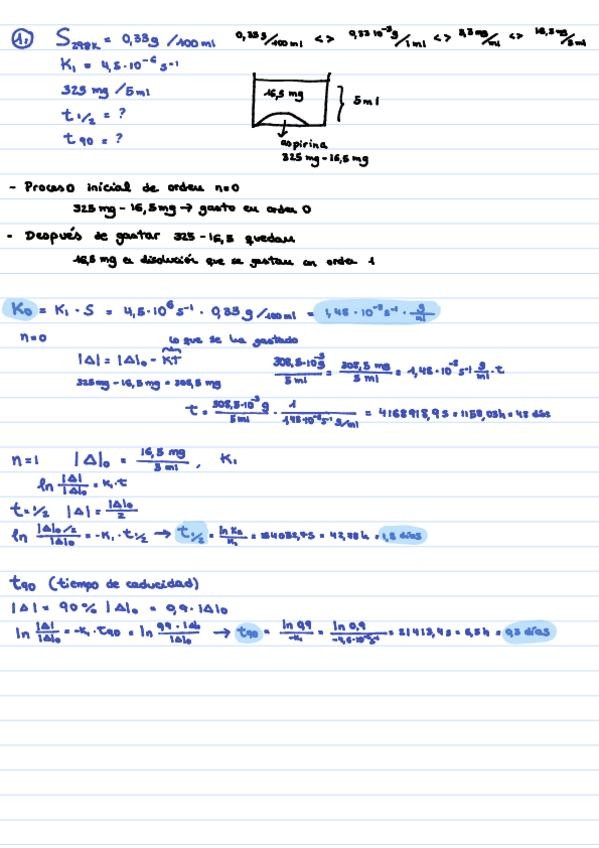 1. S298K = 0,33g /100 ml 0,33 g/100 ml <> 0,33·10⁻²g/1 ml <> 3,3 mg/ml <> 16,5 mg/5 ml
K₁ = 4,5·10⁻⁶ s⁻¹
325 mg /5ml
t 1/2 = ?
t 90 = ?
16,5 mg
5 ml
aspirina
325 mg - 16,5 mg
- Proceso inicial de orden n=0
325 mg - 16,5 mg → gasto en orden 0
- Después de gastar 325 - 16,5 quedan
16,5 mg en disolución que se gastan en orden 1
K₀ = K₁ · S = 4,5·10⁶ s⁻¹ · 0,33 g /100 ml = 1,48·10⁻⁸ s⁻¹ · g/ml
n=0 lo que se ha gastado
|A| = |A|₀ - KT 308,5·10⁻³g/5 ml = 308,5 mg/5 ml = 1,48·10⁻⁸ s⁻¹ g/ml · t
325 mg - 16,5 mg = 308,5 mg
t = 308,5·10⁻³ g/5 ml · 1/1,48·10⁻⁸ s⁻¹ g/ml = 4168918,9 s = 1158,03h = 48 días
n=1 |A|₀ = 16,5 mg/5 ml , K₁
ln |A|/|A|₀ = K₁·t
t = 1/2 |A| = |A|₀/2
ln |A|₀/2/|A|₀ = -K₁ · t 1/2 → t 1/2 = = 42,78 h = 1,8 días
t90 (tiempo de caducidad)
|A| = 90% |A|₀ = 0,9 · |A|₀
ln |A|/|A|₀ = -K₁ · t90 = ln 0,9 · |A|₀/|A|₀ → t90 = ln 0,9/-K₁ = ln 0,9/-4,5·10⁻⁶ s⁻¹ = 21413,4 s = 6,5 h = 0,3 días